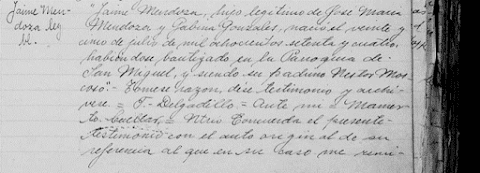 Jaime Men-
doza leg
bt.
"Jaime Mendoza, hijo legitimo de José Maria
Mendoza y Gabina Gonzales, nació el veinte y
cinco de julio de mil ochocientos setenta y cuatro,
habiéndose bautizado en la Parroquia de
San Miguel, y siendo su padrino Nestor Mos-
coso"- Tómese razon, dése testimonio y archi-
vese = F- Delgadillo = Ante mi = Mamer-
to Cuellar, = Ntrio Concuerda el presente
testimonio con el auto original de su
referencia al que en su caso me remi-